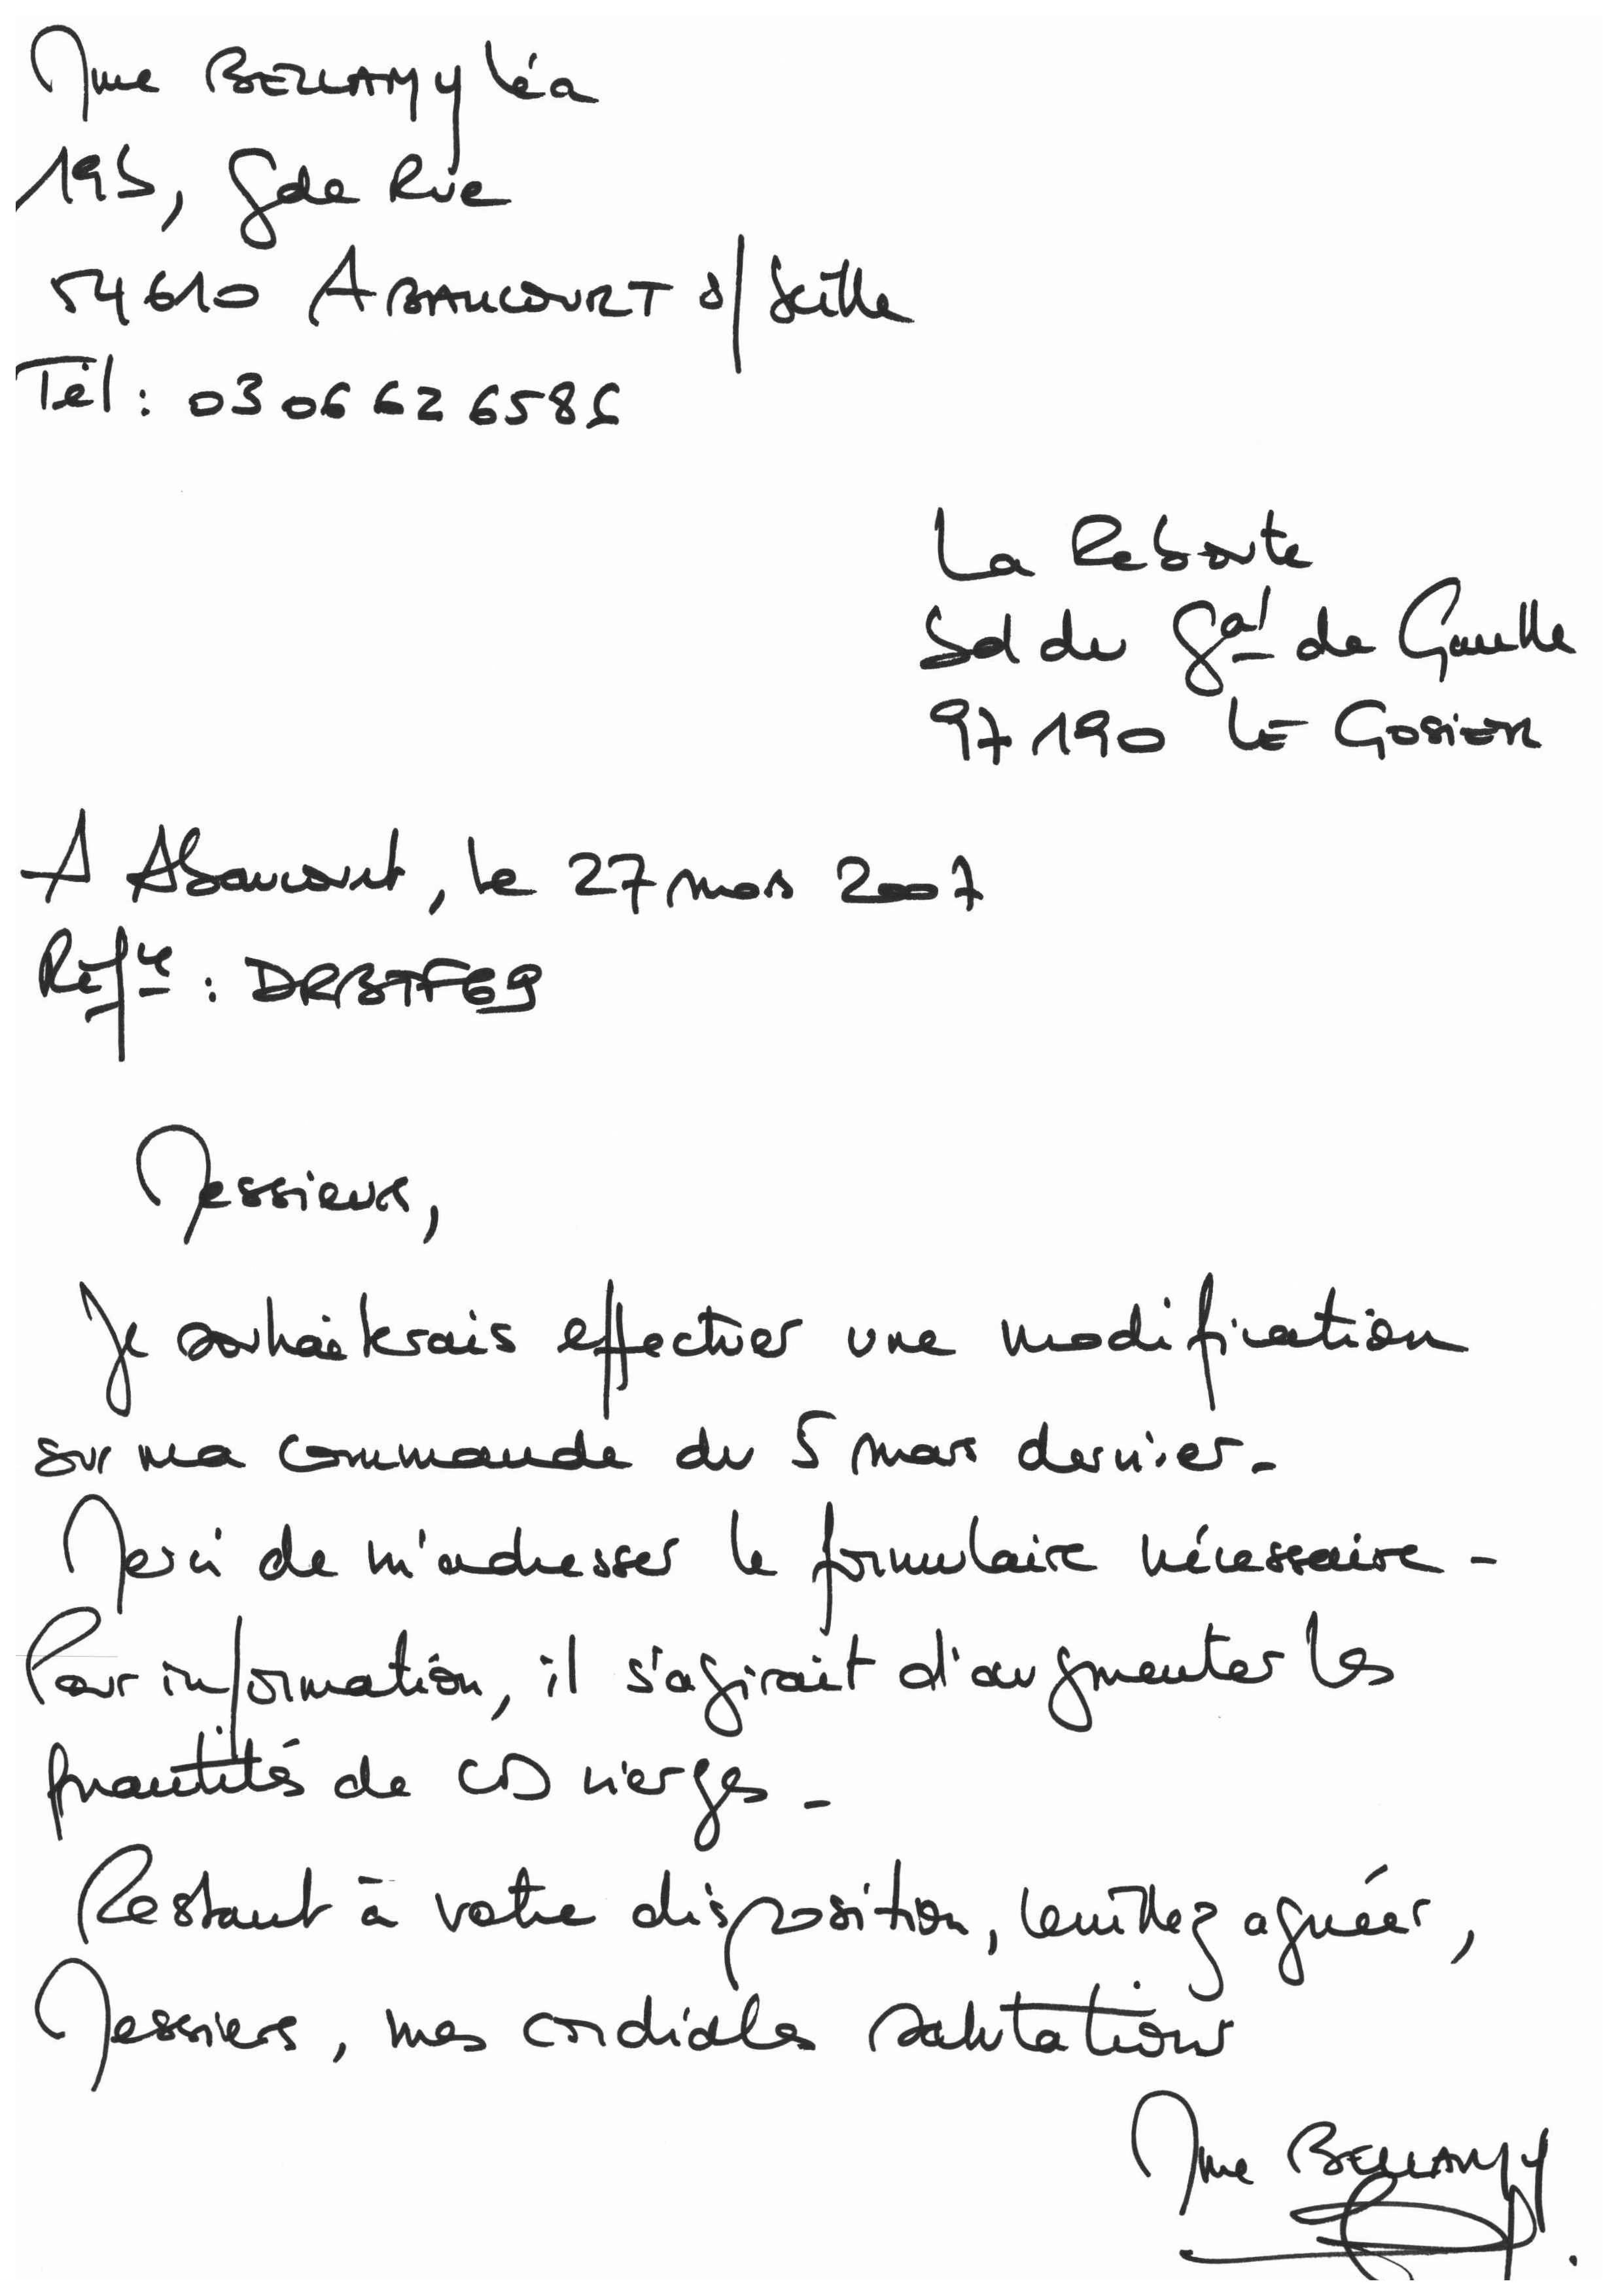 Mme BELLAMY Léa
195, Gde Rue
54610 ABAUCOURT s/ Seille
Tél : 03 06 62 65 86
La Reboute
Bd du Gal de Gaulle
97190 LE GOSIER
A Abaucourt, le 27 mars 2007
Réfce : DRBTF69
Messieurs,
Je souhaiterais effectuer une modification
sur ma commande du 5 mars dernier.
Merci de m'adresser le formulaire nécessaire.
Pour information, il s'agirait d'augmenter les
quantités de CD vierges.
Restant à votre disposition, veuillez agréer,
Messieurs, mes cordiales salutations
Mme BELLAMY